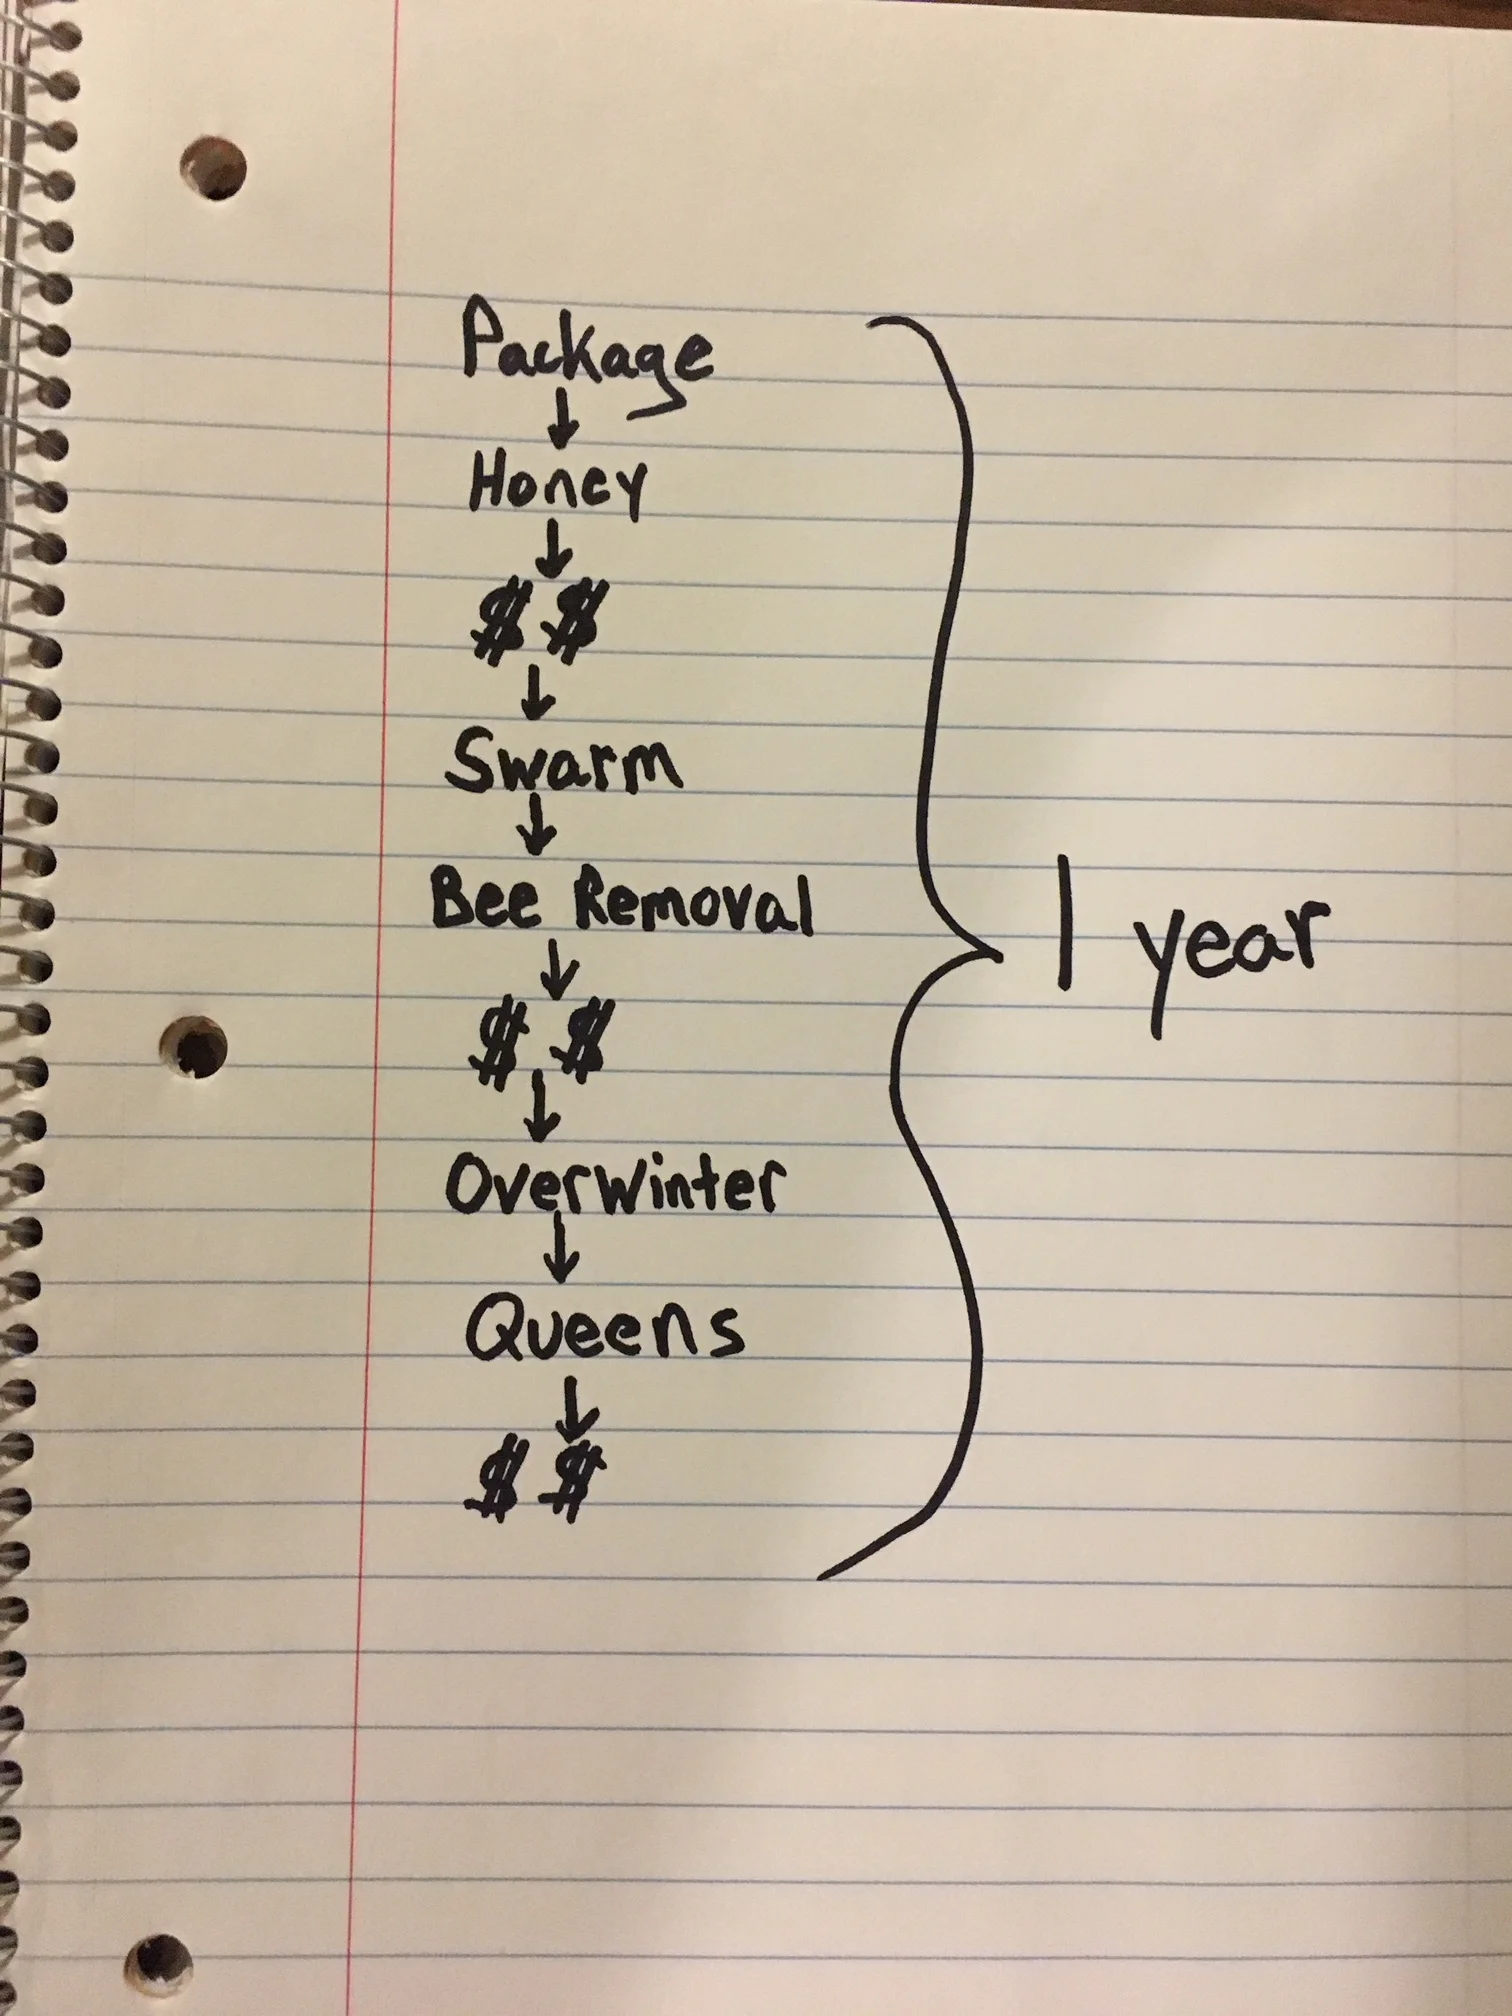 Package
↓
Honey
↓
$ $
↓
Swarm
↓
Bee Removal
↓
$ $
↓
OverWinter
↓
Queens
↓
$ $
1 year